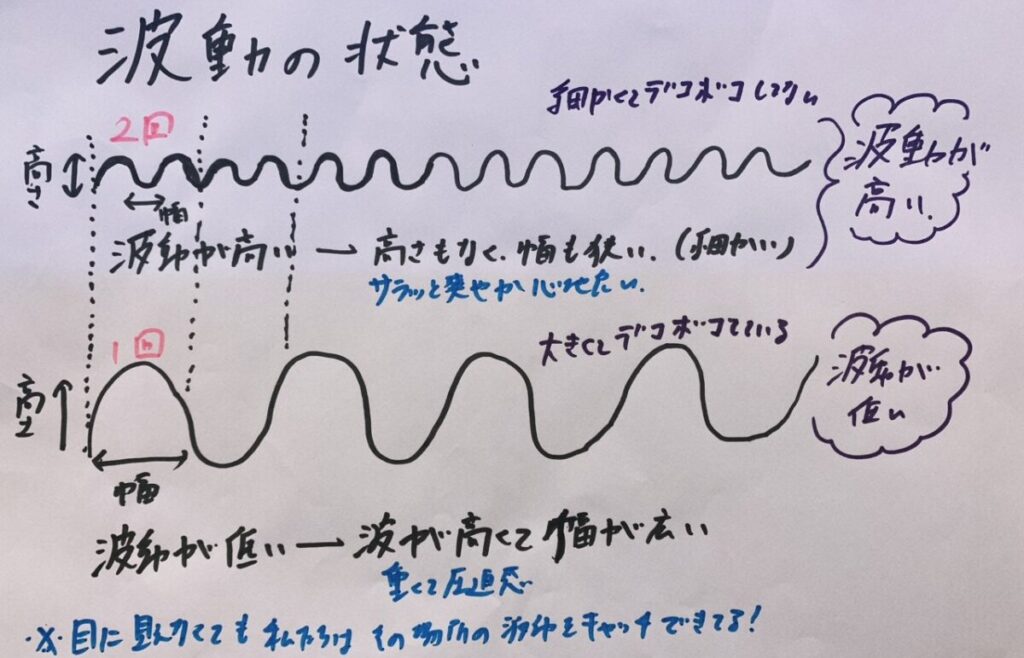 波動の状態
細かくてデコボコしてない
2回
高さ
幅
波動が高い
波動が高い → 高さもなく、幅も狭い。(細かい)
サラッと爽やか心地たい。
大きくてデコボコている
1回
高さ
幅
波動が低い
波動が低い → 波が高くて幅が広い
重くて圧迫感
※目に見えなくても私たちはその場所の波動をキャッチできてる!